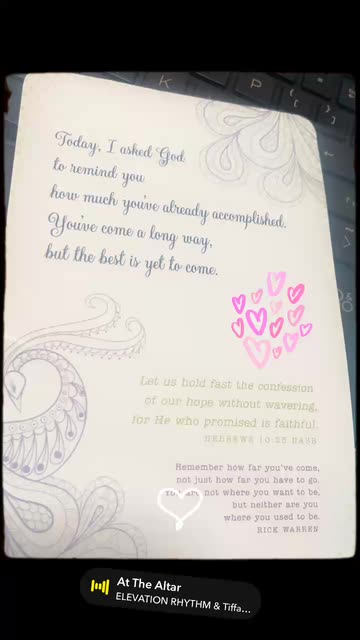 K P
Today, I asked God
to remind you
how much you've already accomplished.
You've come a long way,
but the best is yet to come.
Let us hold fast the confession
of our hope without wavering,
for He who promised is faithful.
HEBREWS 10:23 NASB
Remember how far you've come,
not just how far you have to go.
You are not where you want to be,
but neither are you
where you used to be.
RICK WARREN
At The Altar
ELEVATION RHYTHM & Tiffa...